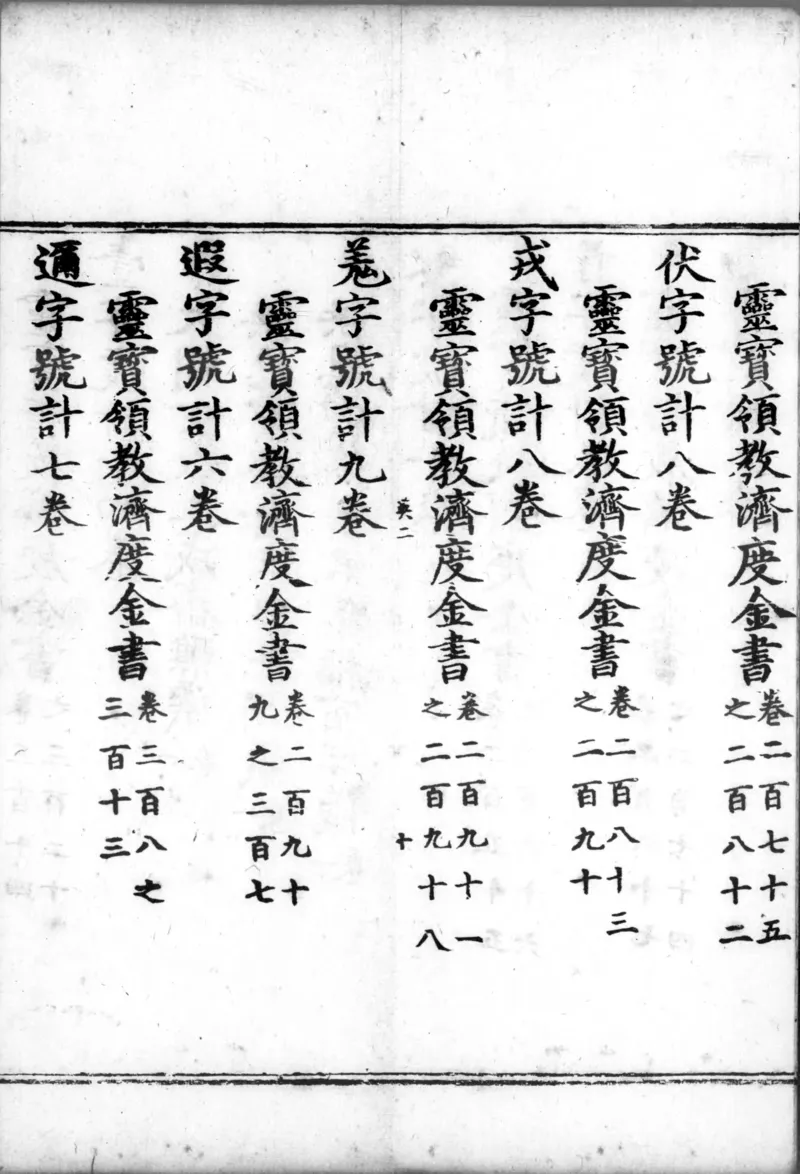 靈寶領教濟度金書卷二百七十五之二百八十二
伏字號計八卷
靈寶領教濟度金書卷二百八十三之二百九十
戎字號計八卷
靈寶領教濟度金書卷二百九十一之二百九十八
英二
十
羌字號計九卷
靈寶領教濟度金書卷二百九十九之三百七
遐字號計六卷
靈寶領教濟度金書卷三百八之三百十三
邇字號計七卷